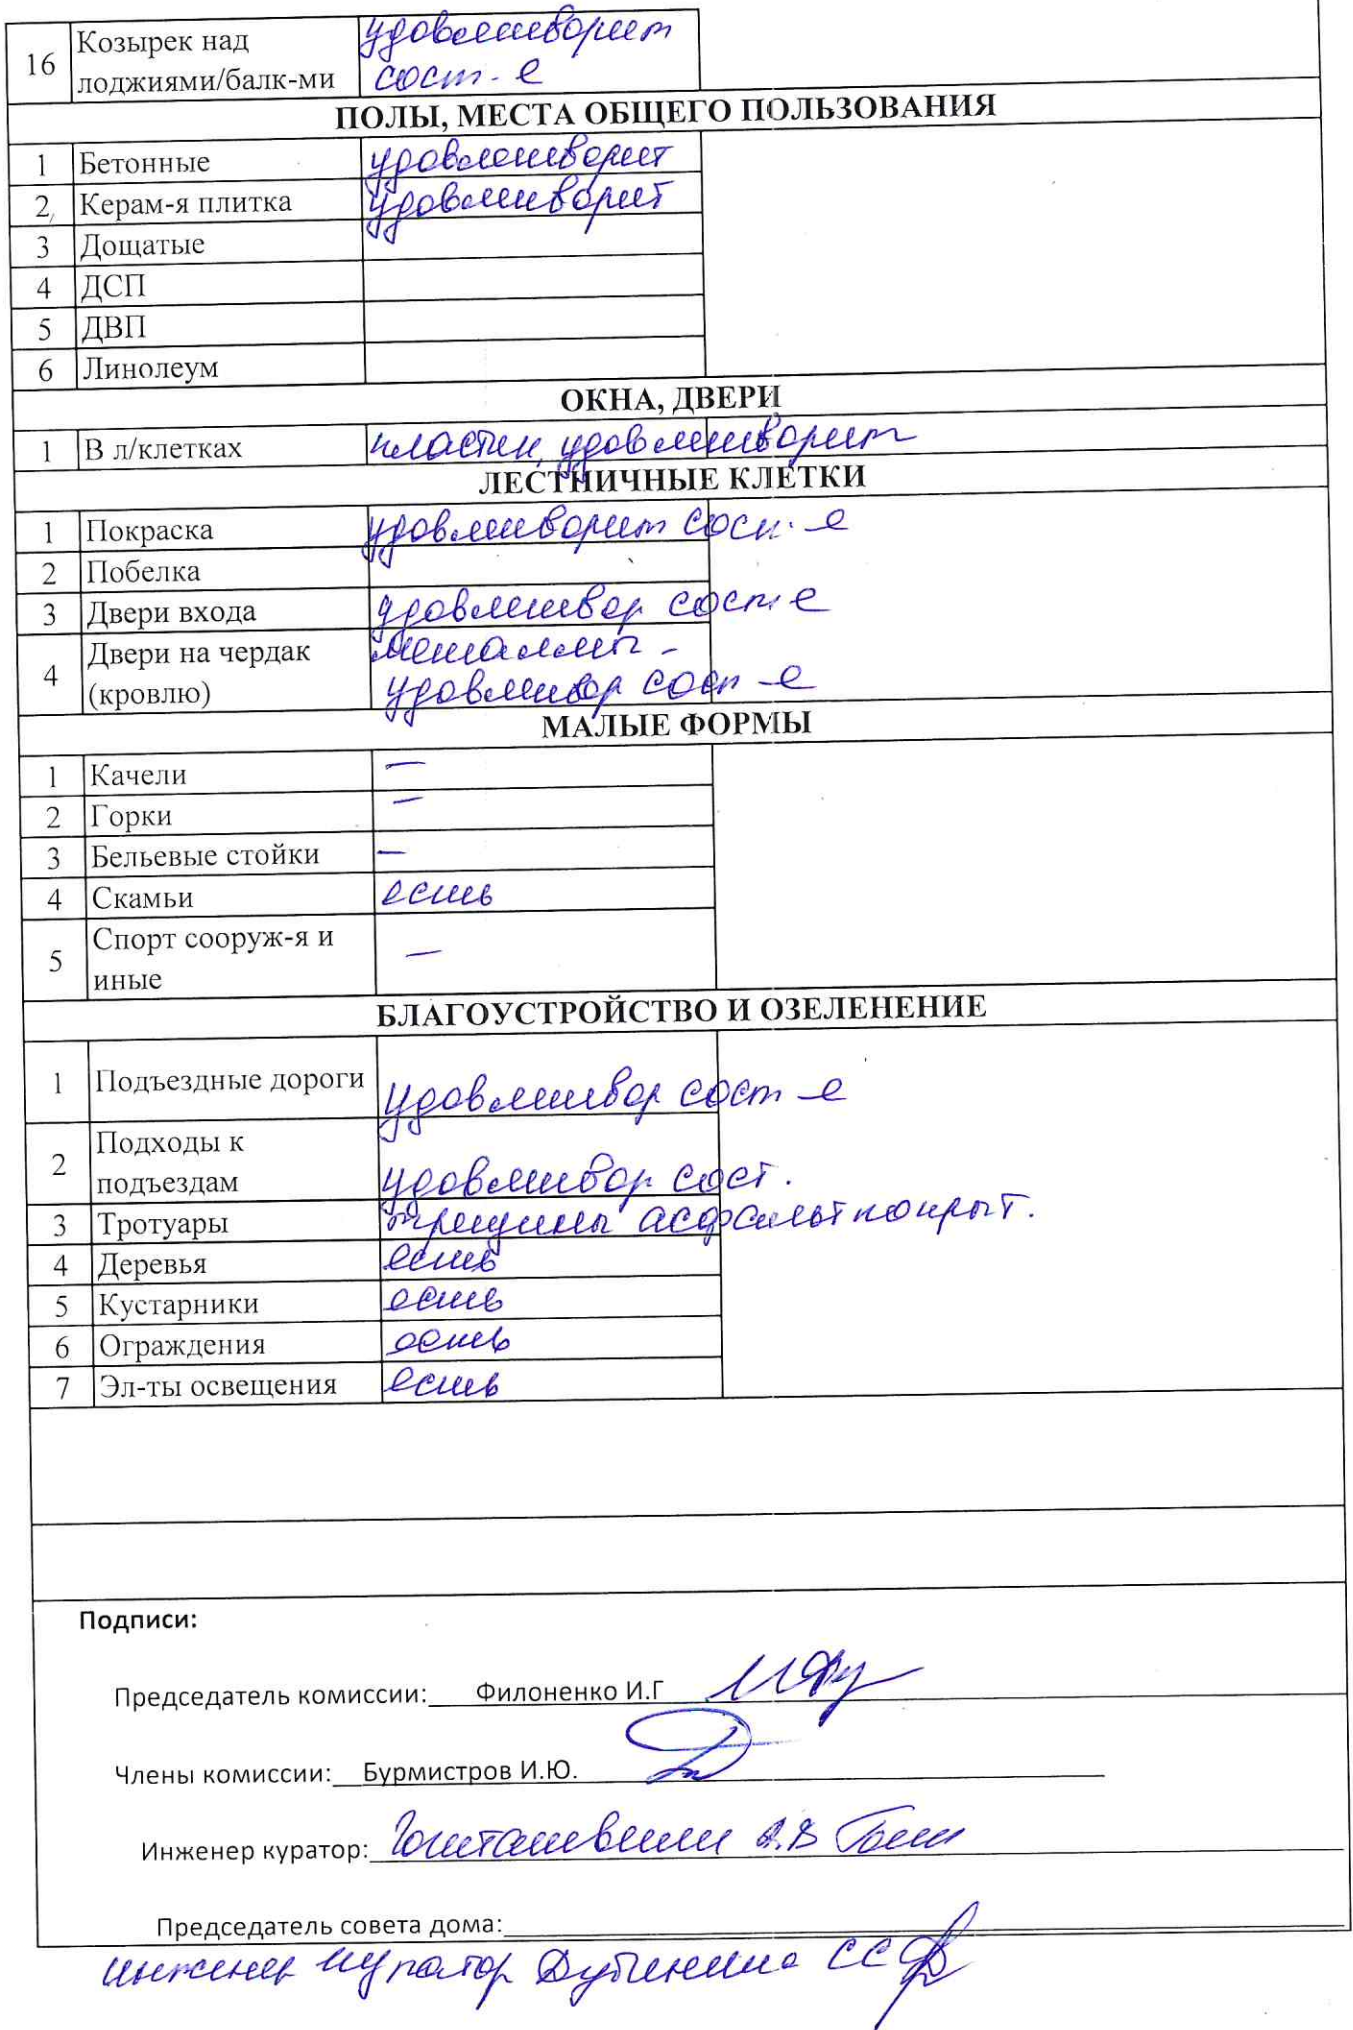 16 Козырек над удовлетворит
лоджиями/балк-ми сост-е
ПОЛЫ, МЕСТА ОБЩЕГО ПОЛЬЗОВАНИЯ
1 Бетонные удовлетворит
2 Керам-я плитка удовлетворит
3 Дощатые
4 ДСП
5 ДВП
6 Линолеум
ОКНА, ДВЕРИ
1 В л/клетках пластик, удовлетворит
ЛЕСТНИЧНЫЕ КЛЕТКИ
1 Покраска удовлетворит сост-е
2 Побелка
3 Двери входа удовлетвор сост-е
4 Двери на чердак металлич -
(кровлю) удовлетвор сост-е
МАЛЫЕ ФОРМЫ
1 Качели —
2 Горки —
3 Бельевые стойки —
4 Скамьи есть
5 Спорт сооруж-я и —
иные
БЛАГОУСТРОЙСТВО И ОЗЕЛЕНЕНИЕ
1 Подъездные дороги удовлетвор сост-е
2 Подходы к
подъездам удовлетвор сост.
3 Тротуары трещины асфальт покрыт.
4 Деревья есть
5 Кустарники есть
6 Ограждения есть
7 Эл-ты освещения есть
Подписи:
Председатель комиссии: Филоненко И.Г
Члены комиссии: Бурмистров И.Ю.
Инженер куратор:
Председатель совета дома:
инженер куратор СС